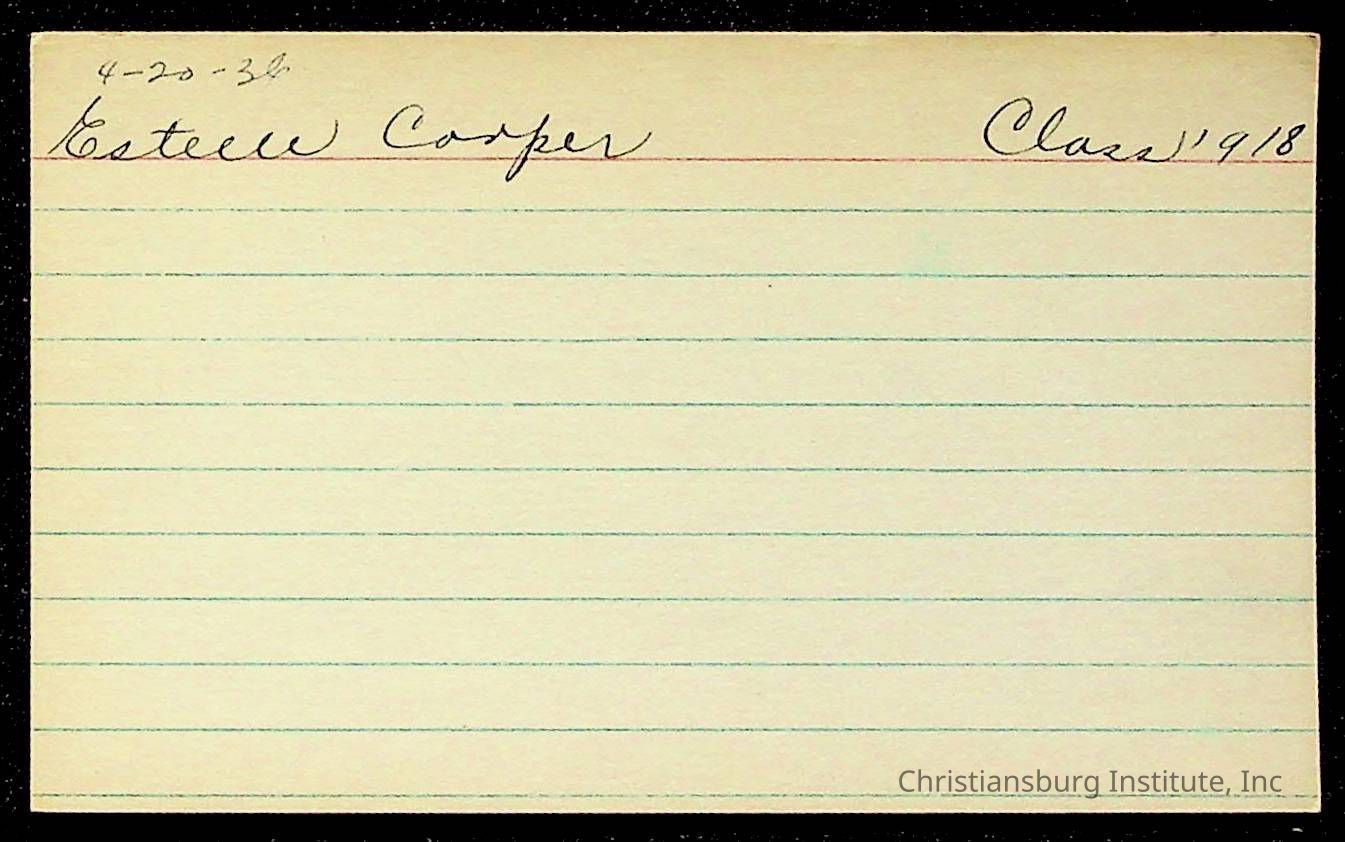 4-20-36
Estelle Cooper Class 1918
Christiansburg Institute, Inc